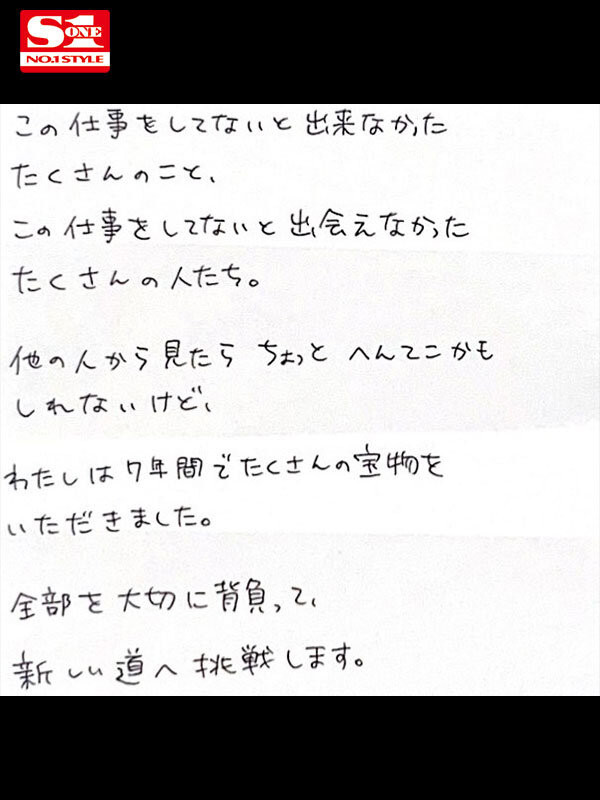 S1
ONE
NO.1 STYLE
この仕事をしてないと出来なかった
たくさんのこと、
この仕事をしてないと出会えなかった
たくさんの人たち。
他の人から見たら ちょっと へんてこかも
しれないけど、
わたしは7年間でたくさんの宝物を
いただきました。
全部を大切に背負って、
新しい道へ挑戦します。